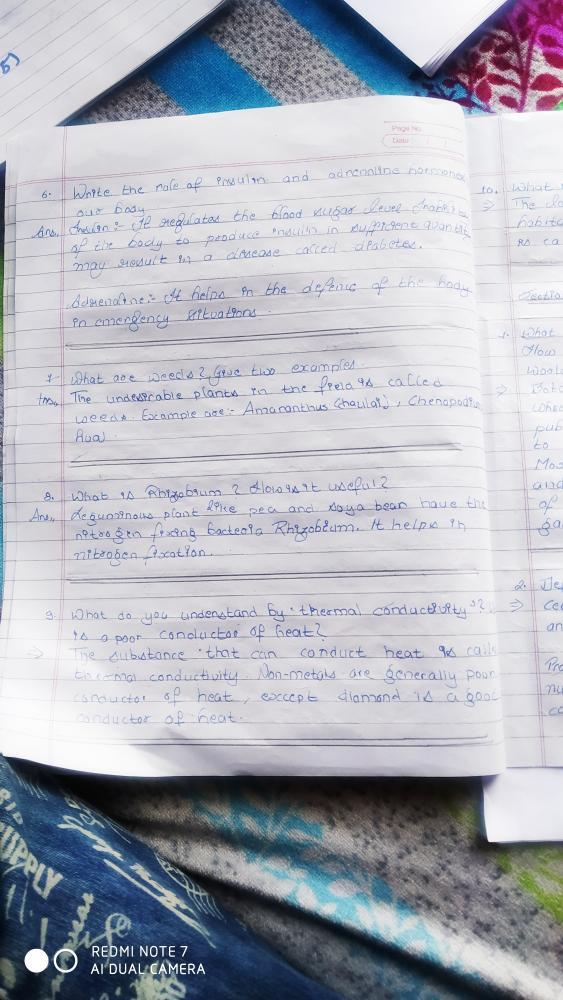 5)
Page No.
Date
6. Write the role of insulin and adrenaline hormones
our body
Ans, Insulin:- It regulates the blood sugar level Inability
of the body to produce insulin in sufficient quantity
may result in a disease called diabetes.
Adrenaline:- It helps in the defence of the body
in emergency situations.
7. What are weeds? Give two examples.
Ans, The undesirable plants in the field is called
weeds. Example are:- Amaranthus (haulai), Chenopodium
8. What is Rhizobium? How is it useful?
Ans, Leguminous plant like pea and soya bean have the
nitrogen fixing bacteria Rhizobium. It helps in
nitrogen fixation.
9. What do you understand by 'thermal conductivity'?
is a poor conductor of heat?
⇒ The substance that can conduct heat is calle
thermal conductivity. Non-metals are generally poor
conductor of heat, except diamond is a good
conductor of heat.
10. What
⇒ The
habita
is ca
1. What
How
⇒
whe
pub
to
Mo
and
of
ga
2. De
⇒ Ce
an
Pro
nu
co
SUPPLY
REDMI NOTE 7
AI DUAL CAMERA